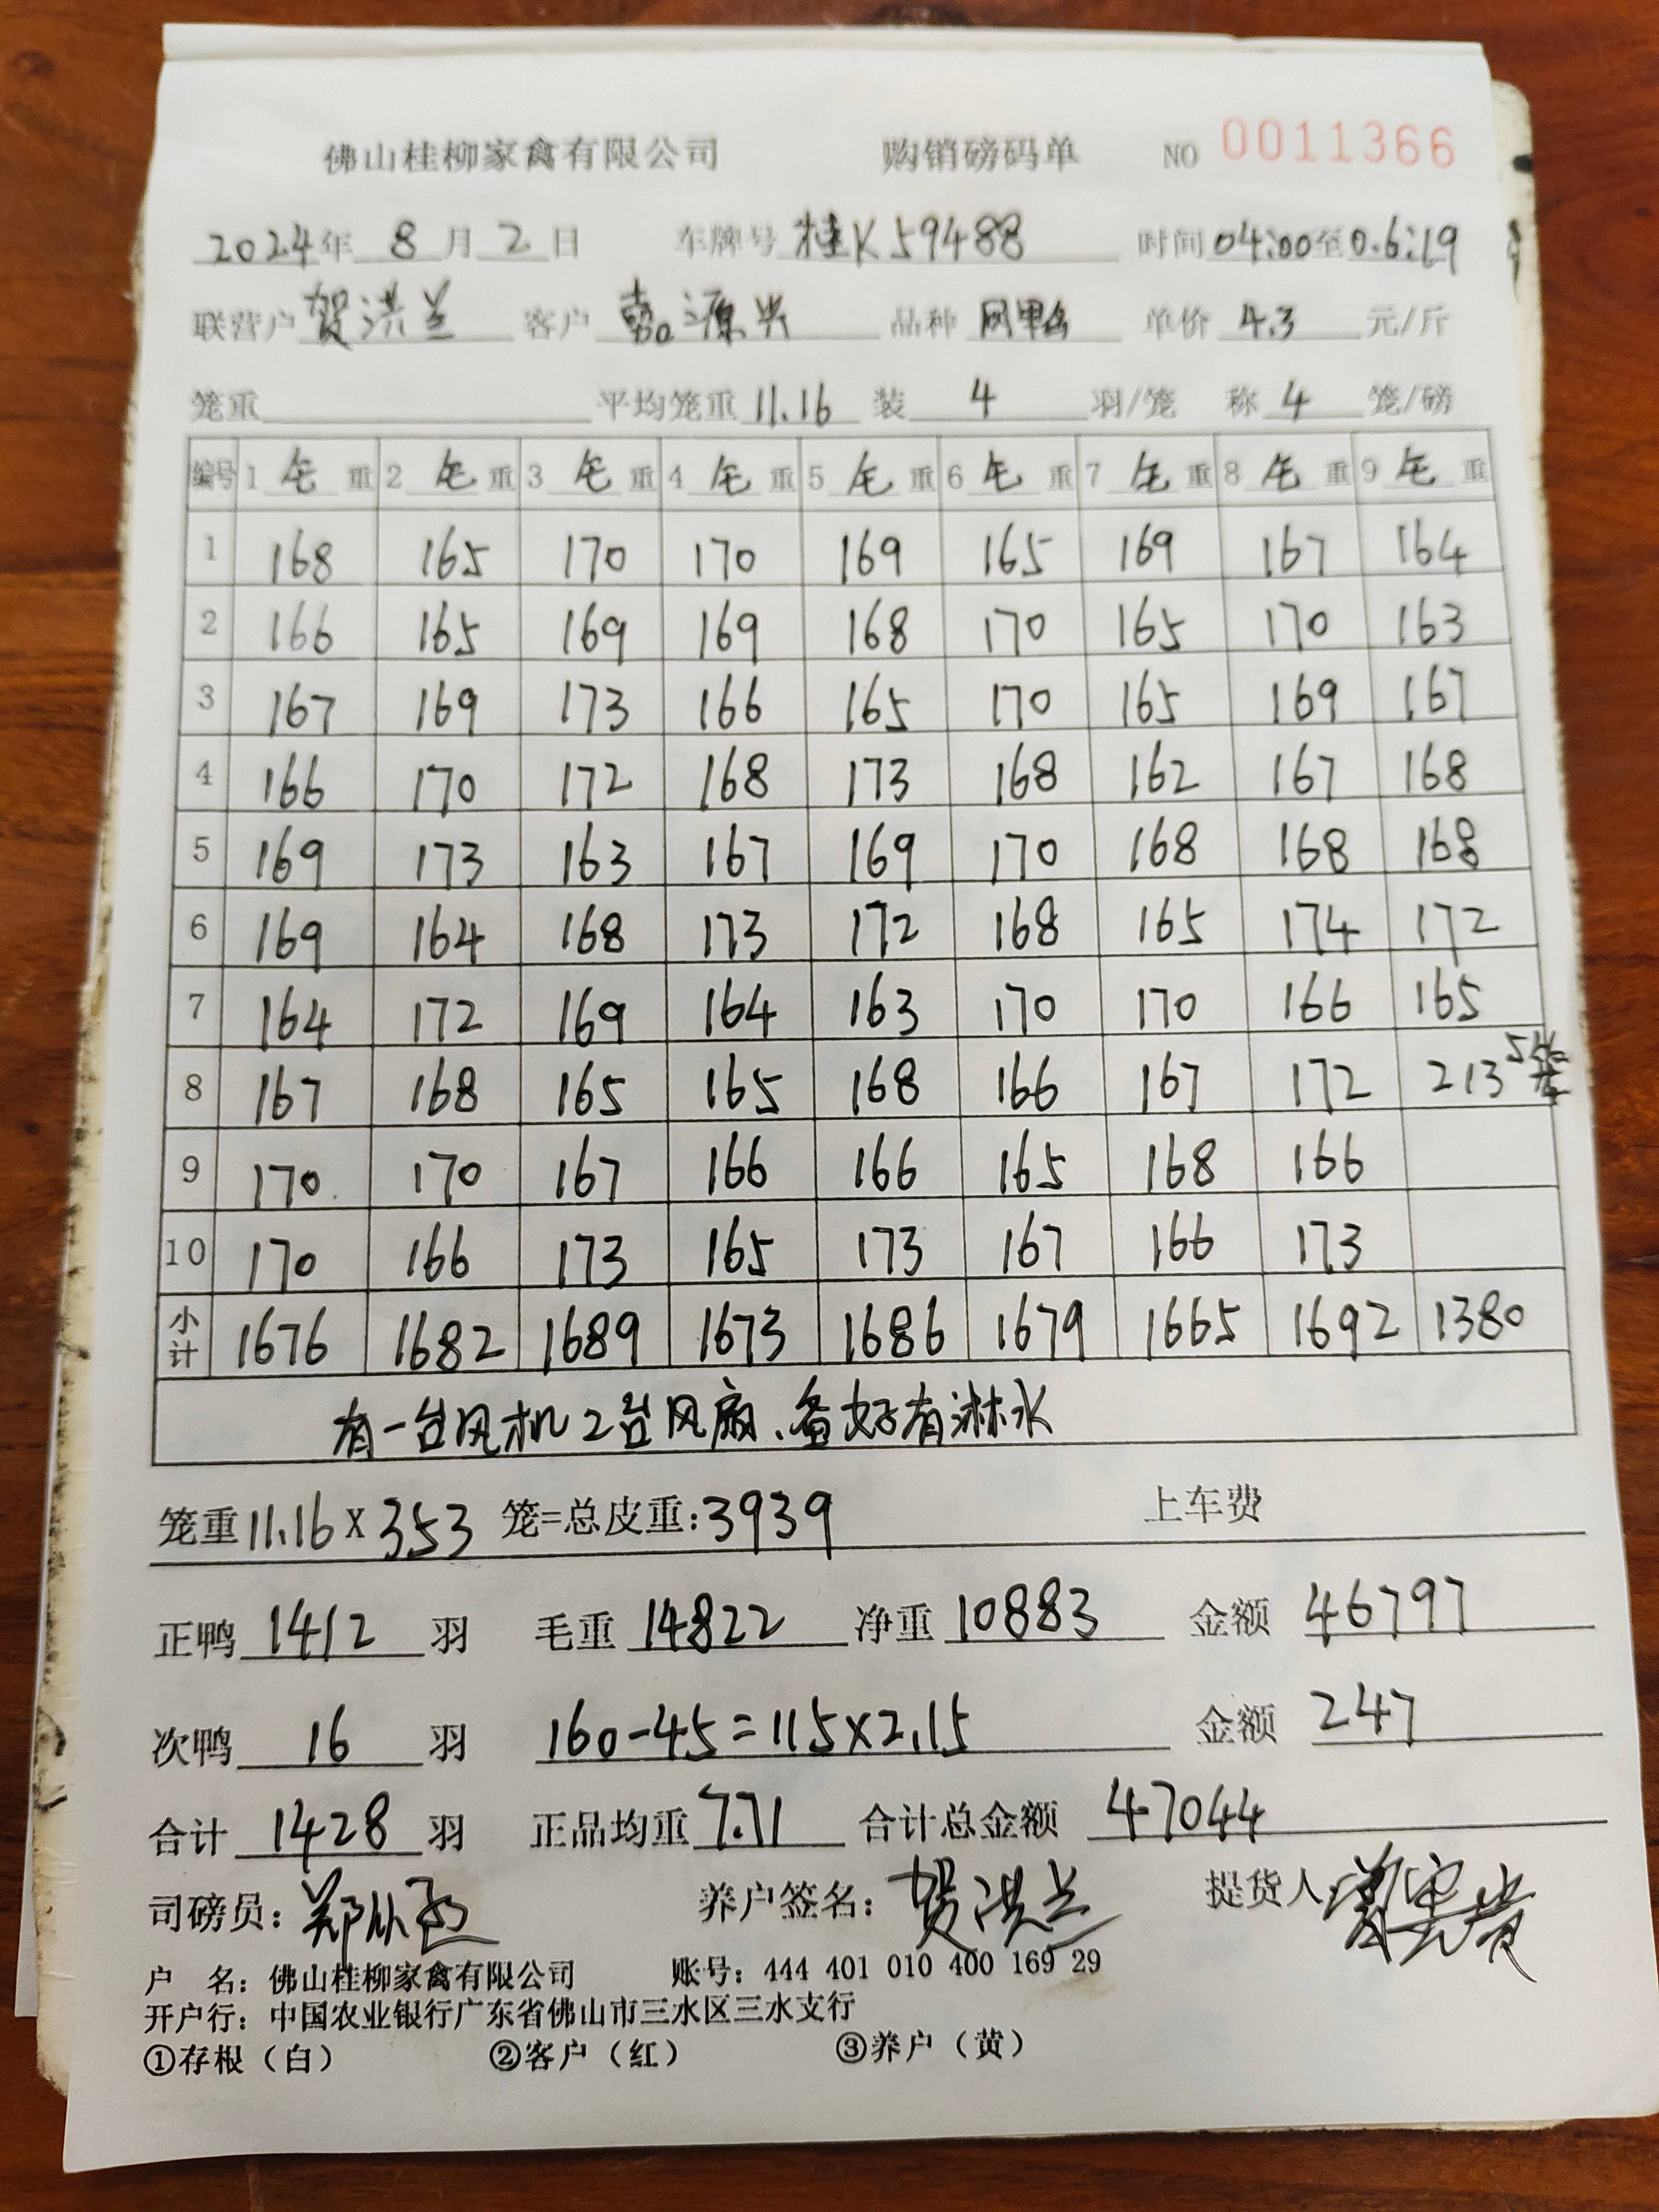 佛山桂柳家禽有限公司 购销磅码单 NO 0011366
2024年 8月2日 车牌号 桂K59488 时间04:00至0.6:19
联营户 贺洪兰 客户 嘉源兴 品种 网鸭 单价 4.3 元/斤
笼重 平均笼重 11.16 装 4 羽/笼 称 4 笼/磅
编号 1 毛重 2 毛重 3 毛重 4 毛重 5 毛重 6 毛重 7 毛重 8 毛重 9 毛重
1 168 165 170 170 169 165 169 167 164
2 166 165 169 169 168 170 165 170 163
3 167 169 173 166 165 170 165 169 167
4 166 170 172 168 173 168 162 167 168
5 169 173 163 167 169 170 168 168 168
6 169 164 168 173 172 168 165 174 172
7 164 172 169 164 163 170 170 166 165
8 167 168 165 165 168 166 167 172 213 5笼
9 170 170 167 166 166 165 168 166
10 170 166 173 165 173 167 166 173
小计 1676 1682 1689 1673 1686 1679 1665 1692 1380
有一台风机2台风扇、备好有淋水
笼重11.16×353 笼=总皮重:3939 上车费
正鸭 1412 羽 毛重 14822 净重 10883 金额 46797
次鸭 16 羽 160-45=115×2.15 金额 247
合计 1428 羽 正品均重 7.71 合计总金额 47044
司磅员: 养户签名: 贺洪兰 提货人
户 名: 佛山桂柳家禽有限公司 账号: 444 401 010 400 169 29
开户行: 中国农业银行广东省佛山市三水区三水支行
①存根(白) ②客户(红) ③养户(黄)